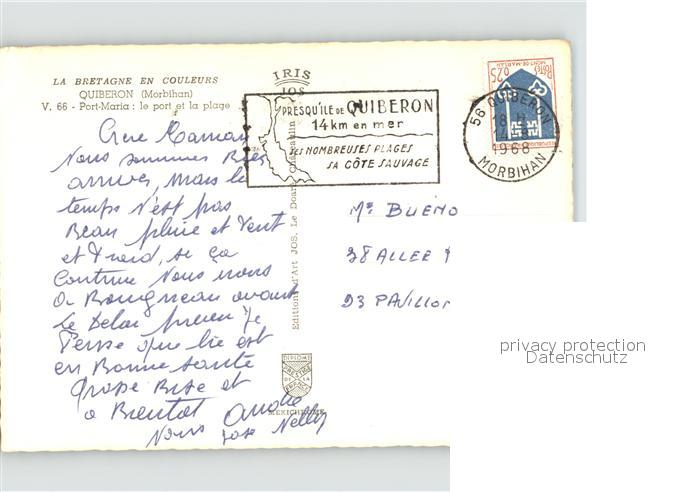 LA BRETAGNE EN COULEURS
QUIBERON (Morbihan)
V. 66 - Port-Maria : le port et la plage
IRIS
JOS
PRESQU'ILE DE QUIBERON
14 km en mer
SES NOMBREUSES PLAGES
SA CÔTE SAUVAGE
0,25
MONT-DE-MARSAN
56 QUIBERON
18 H
1968
MORBIHAN
Maman
Nous sommes Bien
arrivés, mais le
temps n'est pas
Beau pluie et Vent
et Froid, si ça
Continue Nous
avant
Le
que est
en Bonne santé
Grosse Bise et
a Bientot
Nous José Nelly
Editions d'Art JOS. Le Doaré, Châteaulin
DIPLOME
PRESTIGE
DE LA
FRANCE
MEXICHROME
Me BUENO
38 ALLEE
93 PAVILLO
privacy protection
Datenschutz